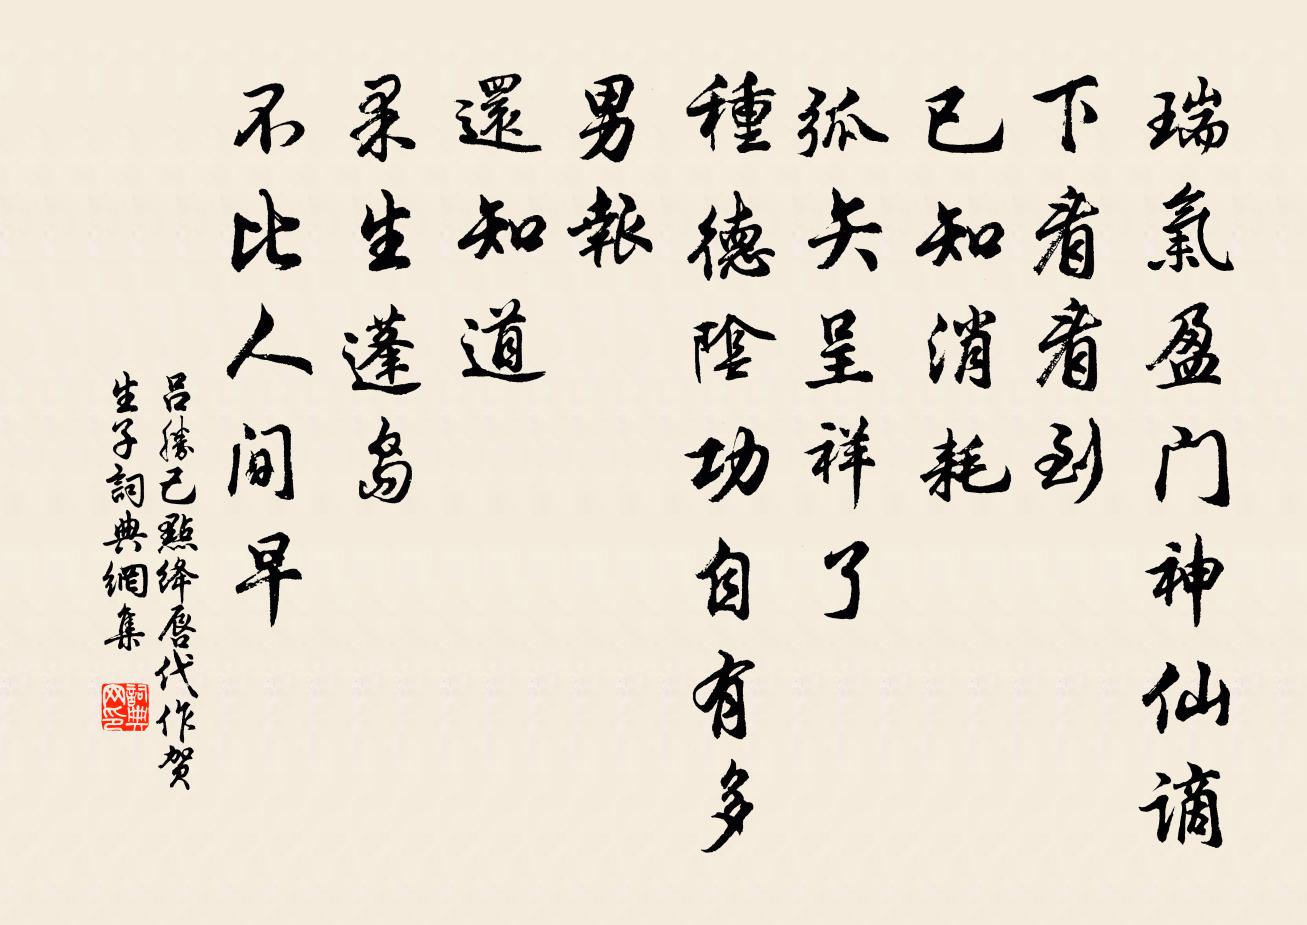 瑞氣盈门神仙謫
下看看到
已知消耗
弧矢呈祥了
種德陰功自有多
男報
還知道
果生蓬島
不比人间早
吕勝己點绛唇代作贺
生子詞典網集
詞典网印